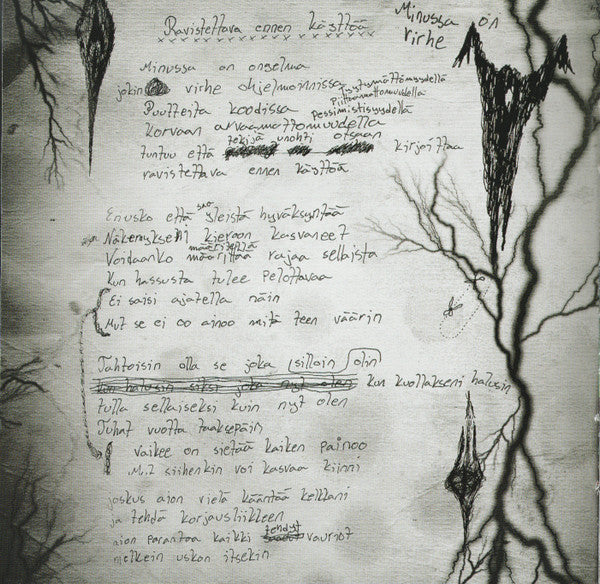 Ravistettava ennen käyttöä
Minussa on
virhe
Minussa on ongelma
jokin virhe ohjelmoinnissa
Puutteita koodissa
Tyytymättömyydellä
Piittaamattomuudella
pessimistisyydellä
korvaan arvaamattomuudella
tuntuu että tekijä unohti otsaan kirjoittaa
ravistettava ennen käyttöä
En usko että saa yleistä hyväksyntää
Näkemykseni kieroon kasvaneet
Voidaanko määritellä
määrittää rajaa sellaista
Kun hassusta tulee pelottavaa
Ei saisi ajatella näin
Mut se ei oo ainoo mitä teen väärin
Tahtoisin olla se joka silloin olin
kun halusin siksi joka nyt olen kun kuollakseni halusin
tulla sellaiseksi kuin nyt olen
Tuhat vuotta taaksepäin
Vaikee on sietää kaiken painoo
Mut siihenkin voi kasvaa kiinni
joskus aion vielä kääntää kelkkani
ja tehdä korjausliikkeen
aion parantaa kaikki tehdyt
saadut vauriot
melkein uskon itsekin